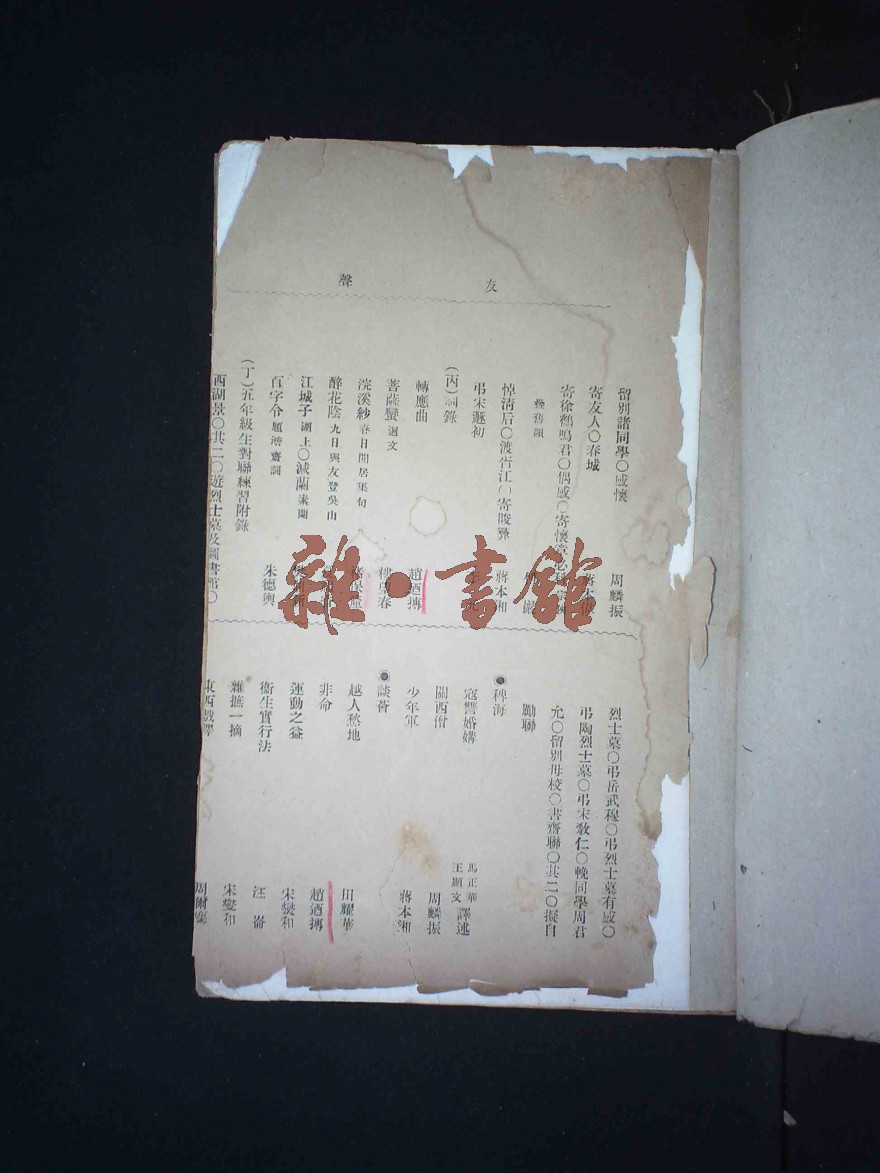 友聲
留別諸同學○感懷 周麟振
寄友人○春城 蔣本
寄徐鶴鳴君○偶感○寄懷章
疊舊韻
悼淸后○渡吿江 寄晙 蔣本湘
弔宋遯初
(丙)詞錄
轉應曲 趙迺摶
菩薩蠻 迴文 春
浣溪紗 春日閒居集句
醉花陰 九日與友登吳山
江城子 湖上○減蘭 素蘭
百字令 題 齋詞 朱德輿
(丁)五年級生對聯練習附錄
西湖景○其二○遊烈士墓及圖書館○
烈士墓○弔岳武穆○弔烈士墓有感○
弔陶烈士墓○弔宋敎仁○輓同學周君
允○留別母校○書齋聯○其二○擬自
勵聯
稗海
寇讐婚媾 馬正華 王顯文 譯述
關西僧 周麟振
少年軍 蔣本湘
談薈
越人愁地 田耀華
非命 趙迺摶
運動之益 宋夔和
衞生實行法 汪崙
雜摭一摘 宋夔和
東西戲譯 周爾
雜·書館